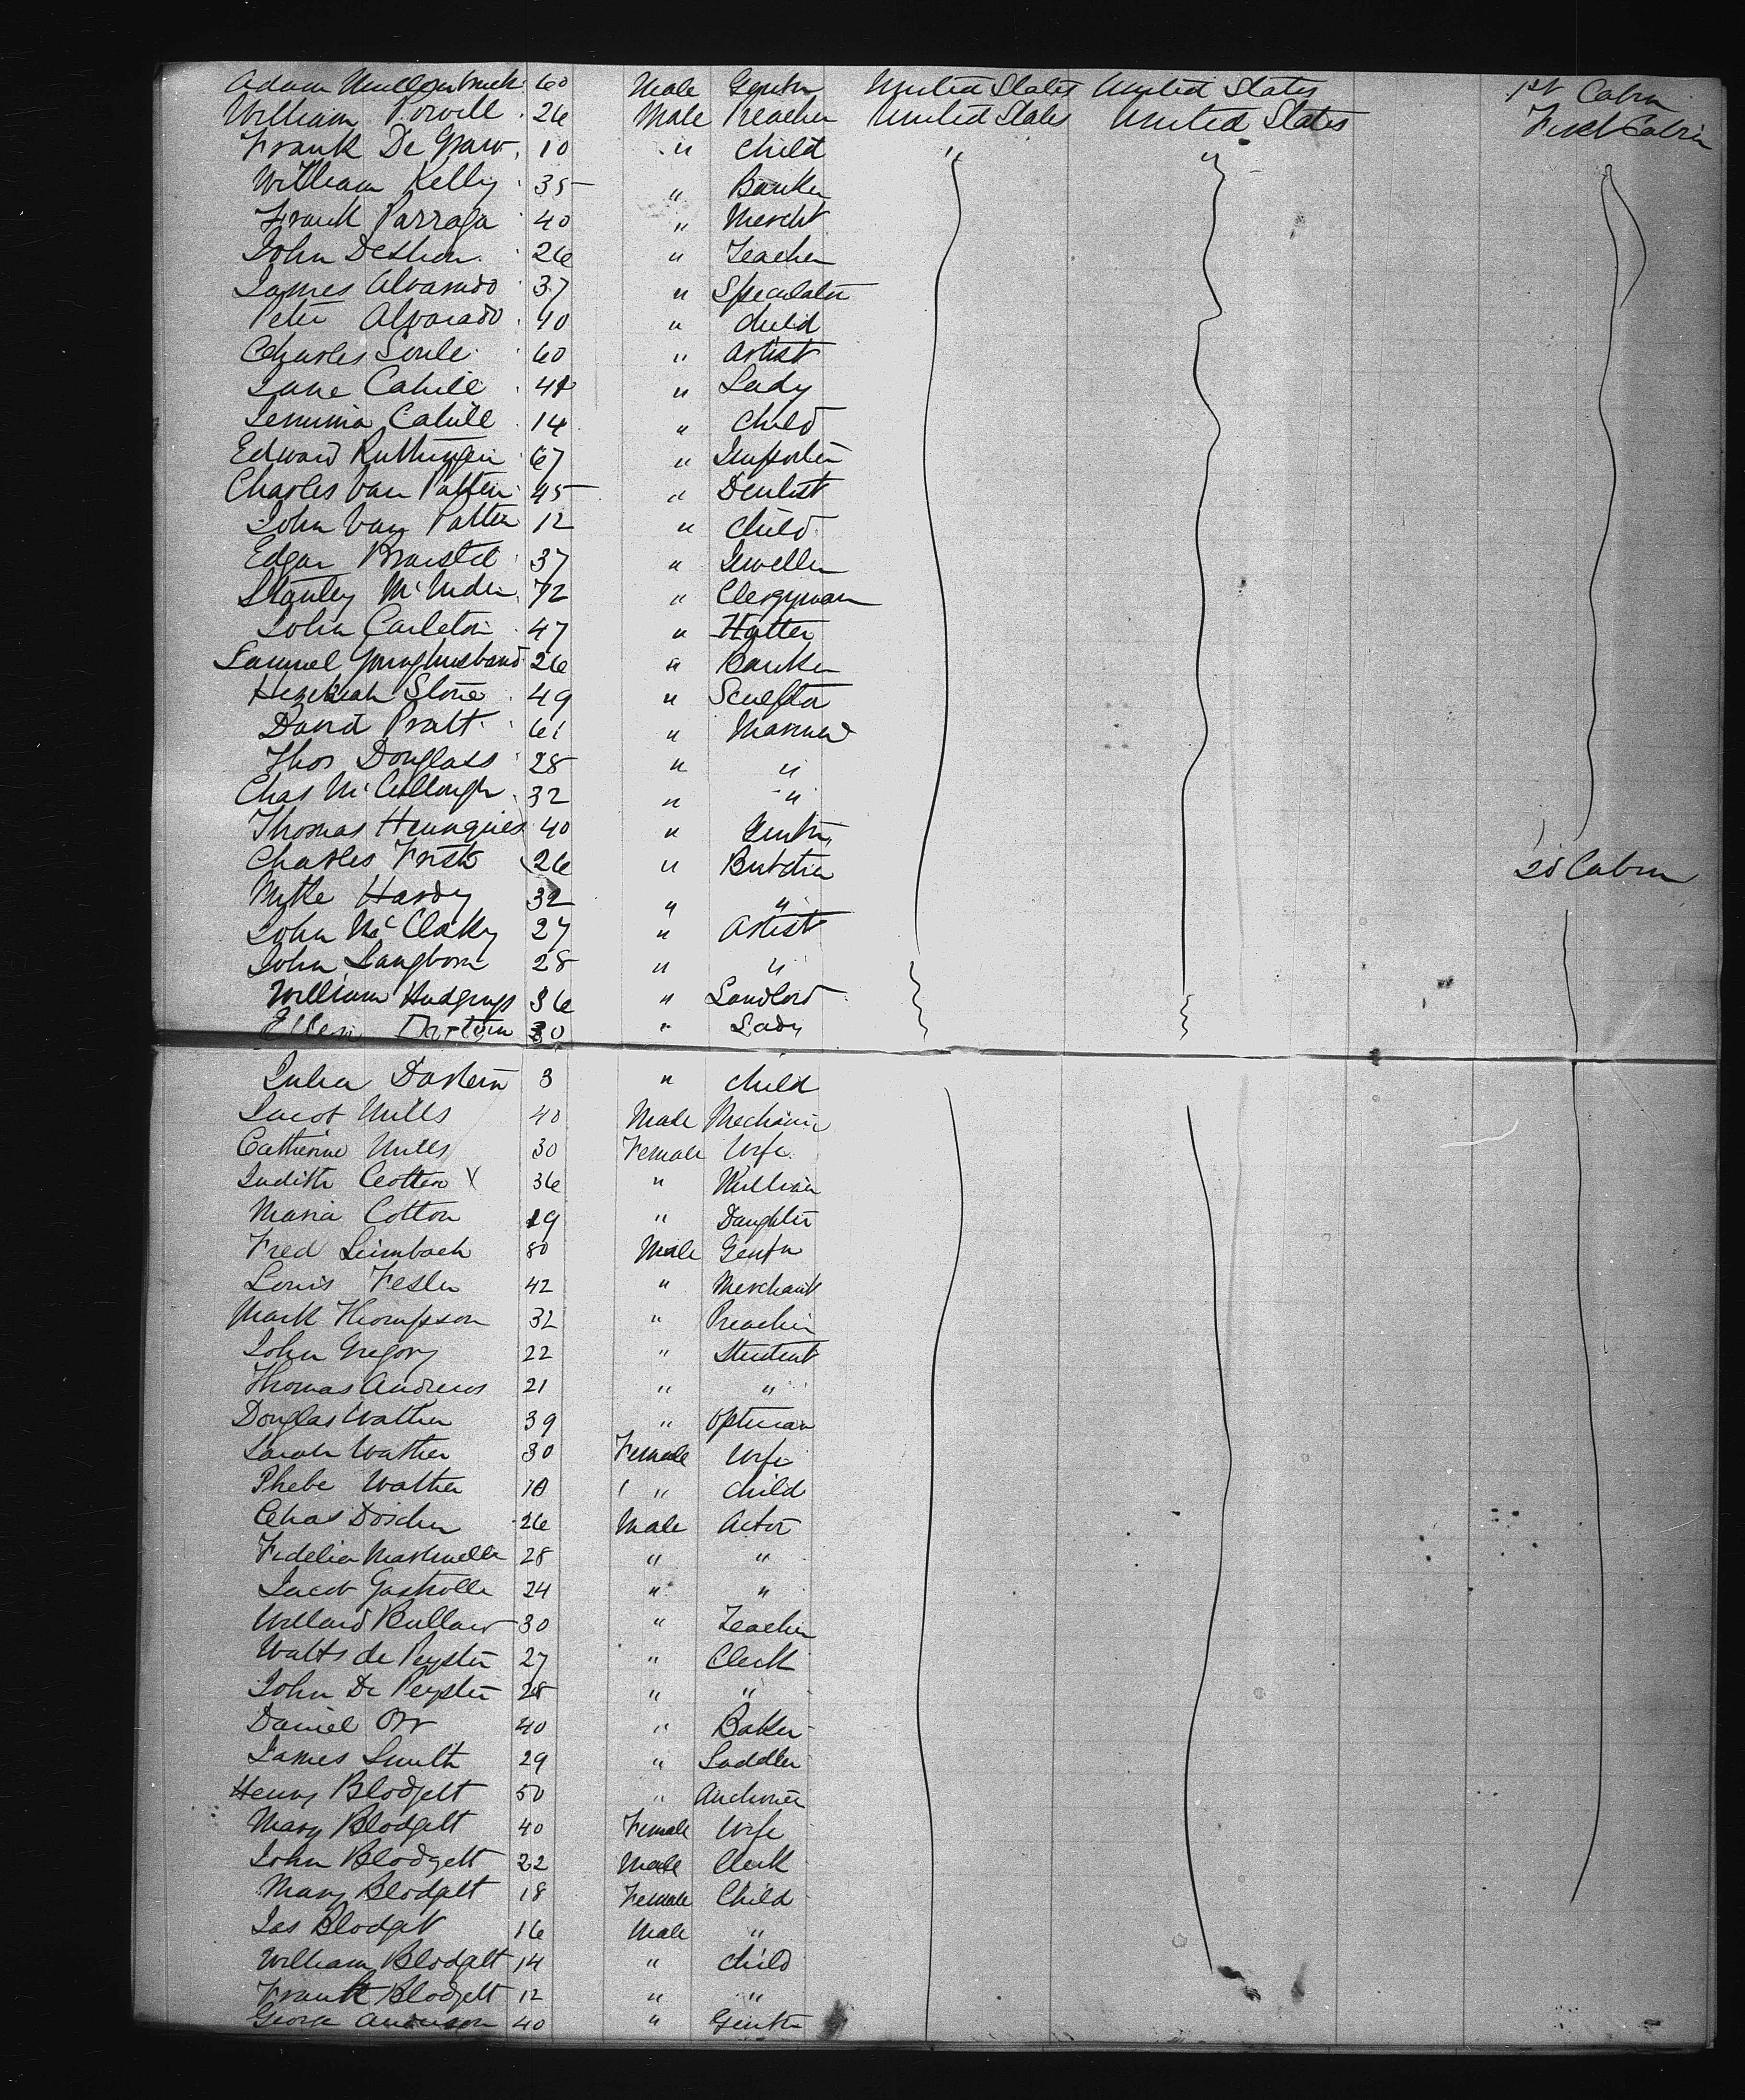 Adam 60 Male Gentn United States United States 1st Cabin
William Powell 26 Male Preacher United States United States First Cabin
Frank De Graw 10 " Child " "
William Kelly 35 " Banker
Frank Parraga 40 " Mercht
John Deshon 26 " Teacher
James Alvarado 37 " Speculator
Peter Alvarado 10 " Child
Charles Soule 60 " Artist
Jane Cahill " Lady
Jemima Cahill 14 " Child
Edward 67 " Importer
Charles Van Patten 45 " Dentist
John Van Patten 12 " Child
Edgar 37 " Jeweller
Stanley 72 " Clergyman
John Carleton 47 " Hatter
Samuel Younghusband 26 " Banker
Hezekiah Stone 49 " Sculptor
David Pratt 61 " Mariner
Thos Douglass 28 " "
Chas McCullough 32 " "
Thomas Henriques 40 " Gentn
Charles Frisk 26 " Butcher 2d Cabin
Mike Hardy 32 " "
John McClosky 27 " Artist
John Langborn 28 " "
William Hudgings 36 " Landlord
Ellen Dastern 30 " Lady
Julia Dastern 3 " Child
Jacob Mills 40 Male Mechanic
Catherine Mills 30 Female Wife
Judith Cotton X 36 " Milliner
Maria Cotton 19 " Daughter
Fred Leimbach 80 Male Gentn
Louis Fesler 42 " Merchant
Mark Thompson 32 " Preacher
John Gregory 22 " Student
Thomas Andrews 21 " "
Douglas Walther 39 " Optician
Sarah Walther 30 Female Wife
Phebe Walther 10 " Child
Chas Doscher 26 Male Actor
Fidelia 28 " "
Jacob 24 " "
Willard Bullard 30 " Teacher
Watts de Peyster 27 " Clerk
John De Peyster 28 " "
Daniel Orr 40 " Baker
James Smith 29 " Saddler
Henry Blodgett 50 " Auctioneer
Mary Blodgett 40 Female Wife
John Blodgett 22 Male Clerk
Mary Blodgett 18 Female Child
Jas Blodgett 16 Male "
William Blodgett 14 " Child
Frank Blodgett 12 " "
George Anderson 40 " Gentn